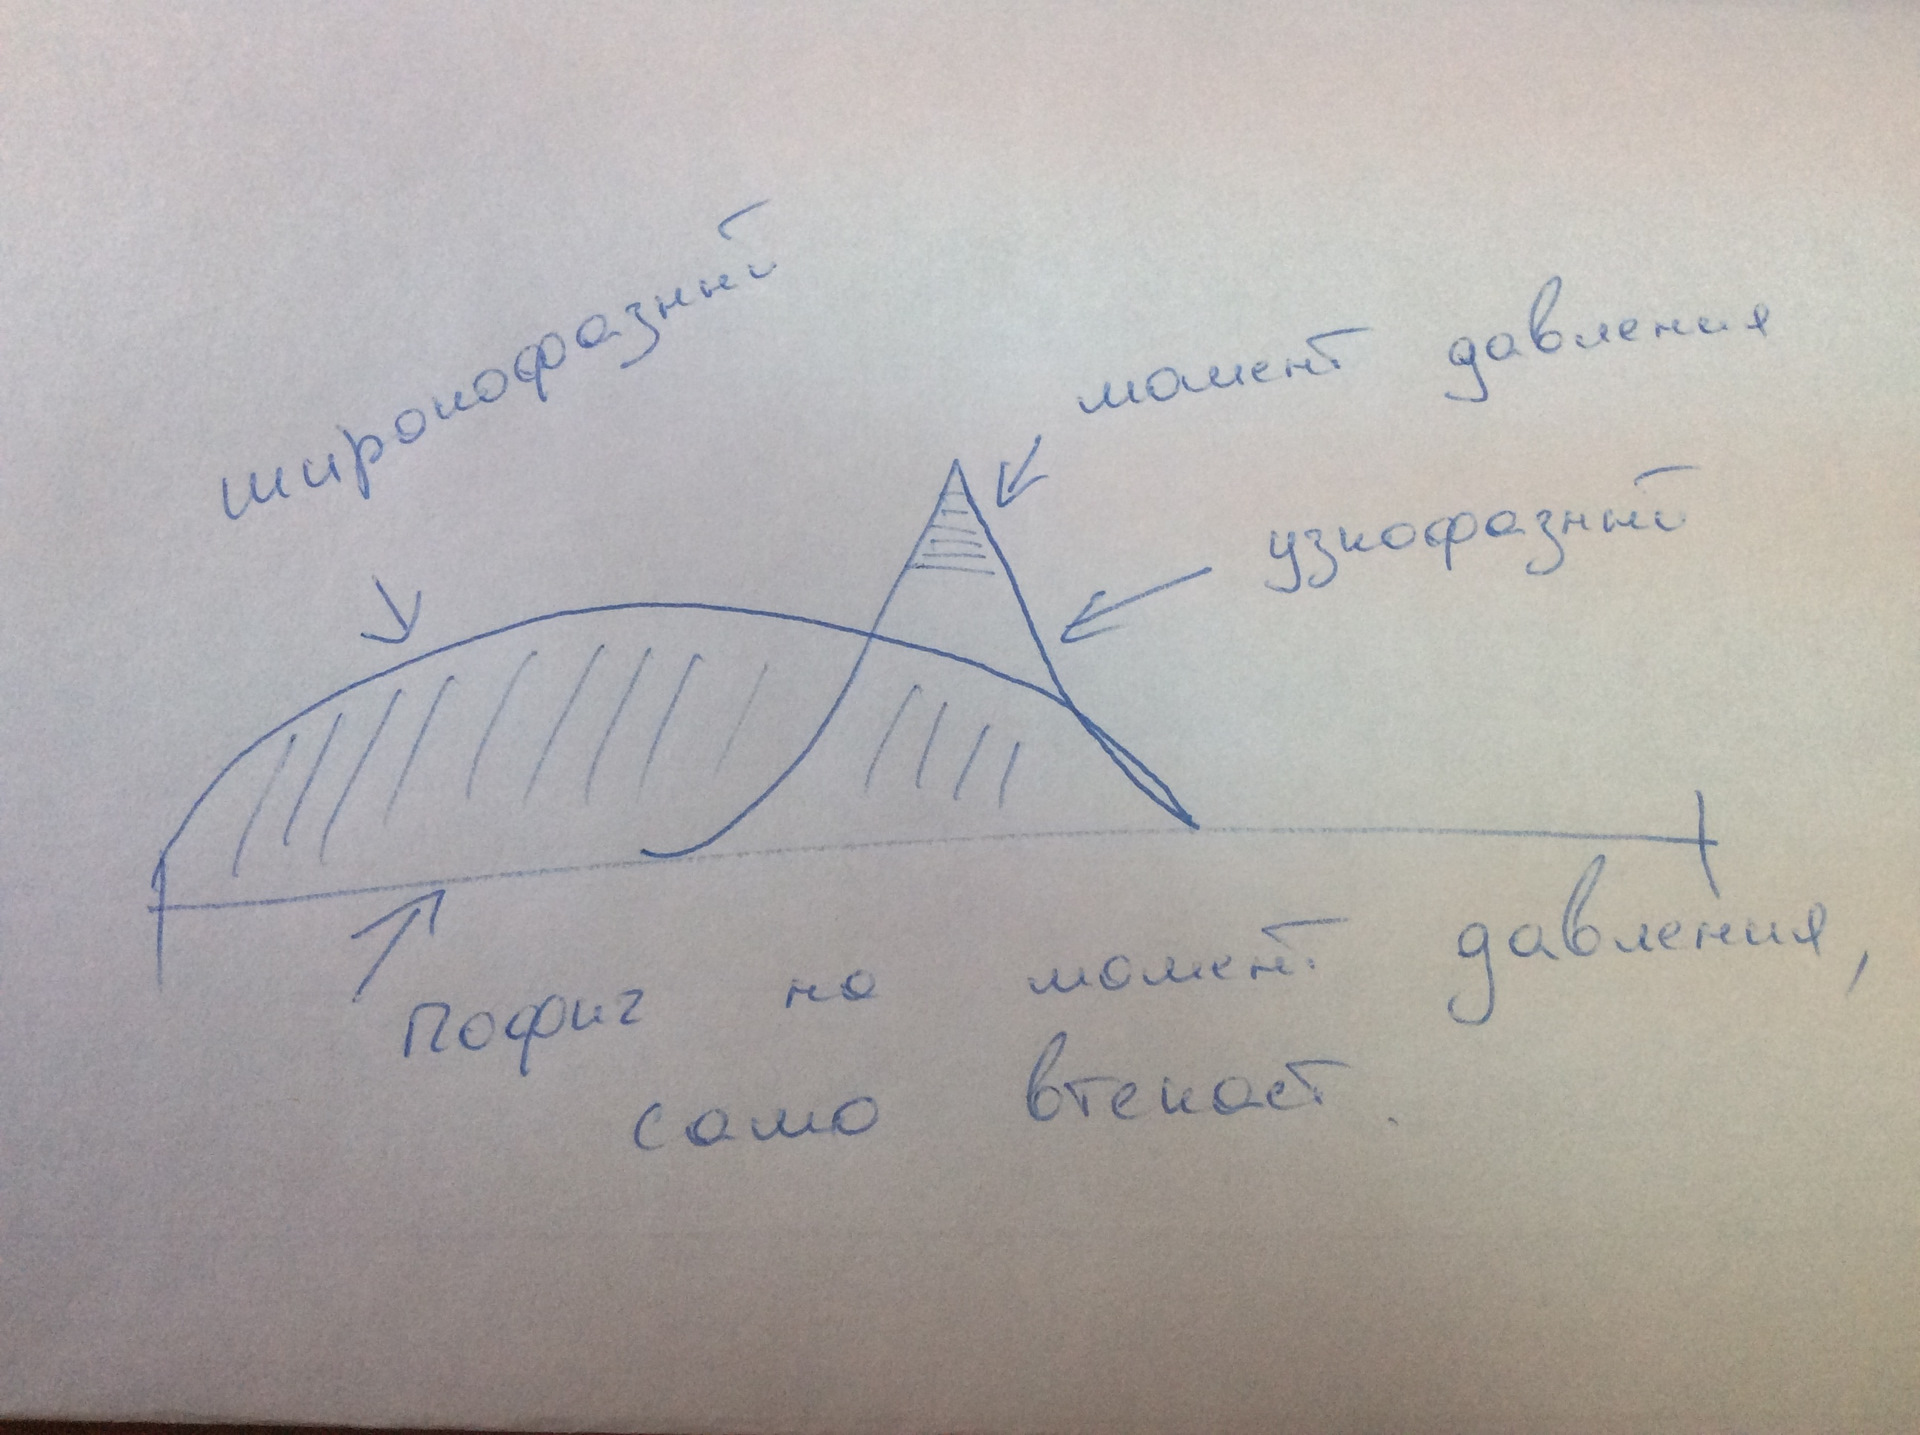 широкофазный
момент давления
узкофазный
Пофиг на момент давления,
само втекает.